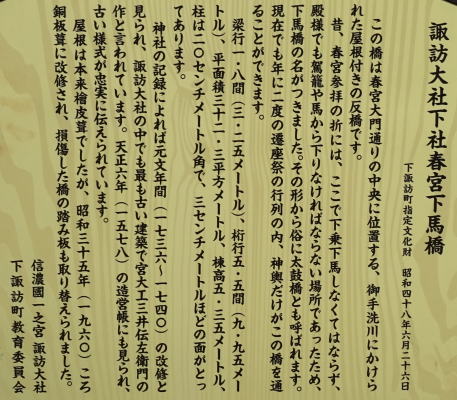 諏訪大社下社春宮下馬橋
下諏訪町指定文化財　昭和四十八年六月二十六日
この橋は春宮大門通りの中央に位置する、御手洗川にかけら
れた屋根付きの反橋です。
昔、春宮参拝の折には、ここで下乗下馬しなくてはならず、
殿様でも駕籠や馬から下りなければならない場所であったため、
下馬橋の名がつきました。その形から俗に太鼓橋とも呼ばれます。
現在でも年に二度の遷座祭の行列の内、神輿だけがこの橋を通
ることができます。
梁行一・八間（三・二五メートル）、桁行五・五間（九・九五メー
トル）、平面積三十二・三平方メートル、棟高五・三五メートル、
柱は二〇センチメートル角で、三センチメートルほどの面がとっ
てあります。
神社の記録によれば元文年間（一七三六～一七四〇）の改修と
見られ、諏訪大社の中でも最も古い建築で宮大工三井伝左衛門の
作と言われています。天正六年（一五七八）の造営帳にも見られ、
古い様式が忠実に伝えられています。
屋根は本来檜皮葺でしたが、昭和三十五年（一九六〇）ころ
銅板葺に改修され、損傷した橋の踏み板も取り替えられました。
信濃國一之宮 諏訪大社
下諏訪町教育委員会